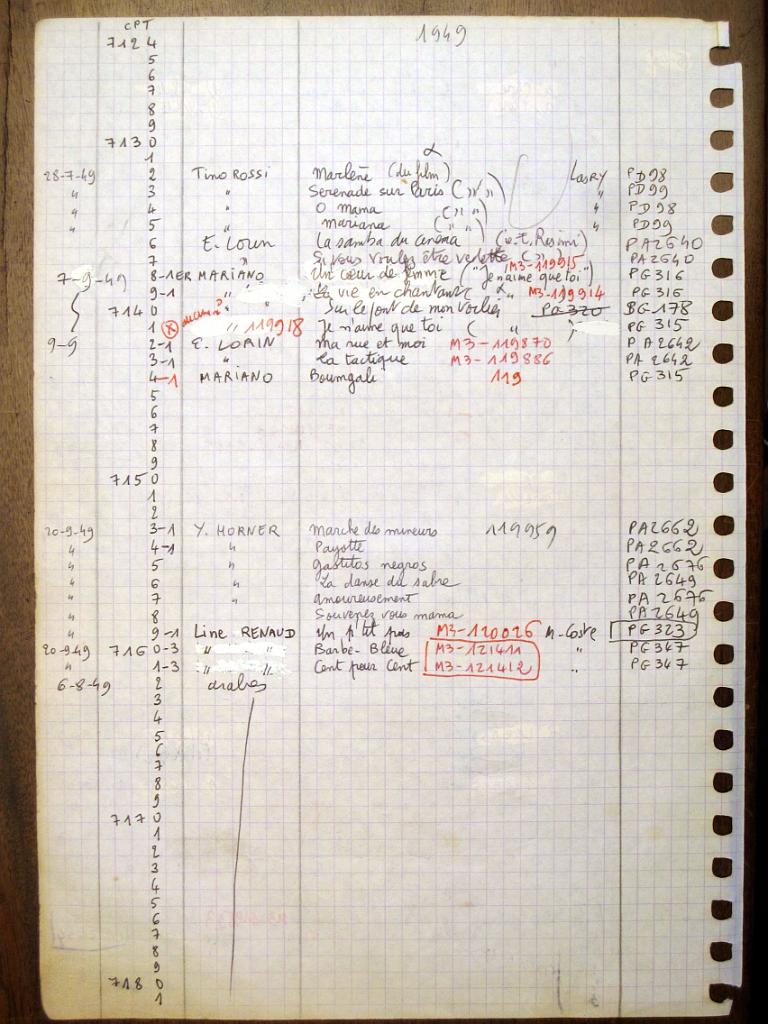 CPT 1949
7124
5
6
7
8
9
7130
1
28-7-49 2 Tino ROSSI Marlène (du film) LASRY PD98
" 3 " Serenade sur Paris ( " " ) " PD99
" 4 " O Mama ( " " ) " PD98
" 5 " Mariana ( " " ) " PD99
6 E. Lorin La samba du cinéma PA2640
7 " Si vous voulez être vedette ( " ) PA2640
7-9-49 8-1ER MARIANO Un cœur de femme ("Je n'aime que toi") M3-119915 PG316
9-1 " La vie en chantant M3-119914 PG316
7140 " Sur le pont de mon voilier PG320 BG-178
1 X " 119918 Je n'aime que toi ( " ) PG 315
9-9 2-1 E. LORIN Ma rue et moi M3-119870 PA2642
3-1 " La tactique M3-119886 PA 2642
4-1 MARIANO Boumgali 119 PG315
5
6
7
8
9
7150
1
2
20-9-49 3-1 Y. HORNER Marche des mineurs 119959 PA2662
" 4-1 " Payotte PA2662
" 5 " Gastitos negros PA2676
" 6 " La danse du sabre PA2649
" 7 " Amoureusement PA2676
" 8 Souvenez vous mama PA2649
" 9-1 Line RENAUD Un p'tit pas M3-120026 M-Coste PG323
20-9-49 7160-3 " " Barbe-Bleue M3-121411 " PG347
" 1-3 " " Cent pour Cent M3-121412 " PG347
6-8-49 2 arabes
3
4
5
6
7
8
9
7170
1
2
3
4
5
6
7
8
9
7180
1